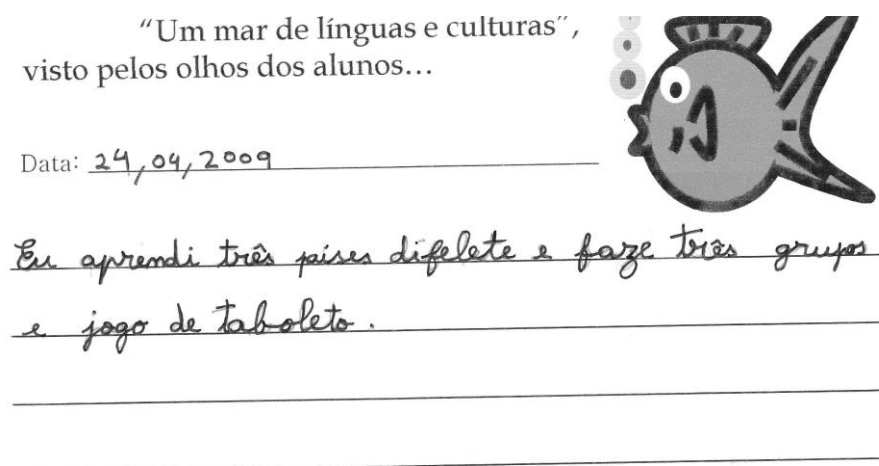 “Um mar de línguas e culturas”,
visto pelos olhos dos alunos...
Data: 24,04,2009
Eu aprendi três paises difelete e faze três grupos
e jogo de taboleto.